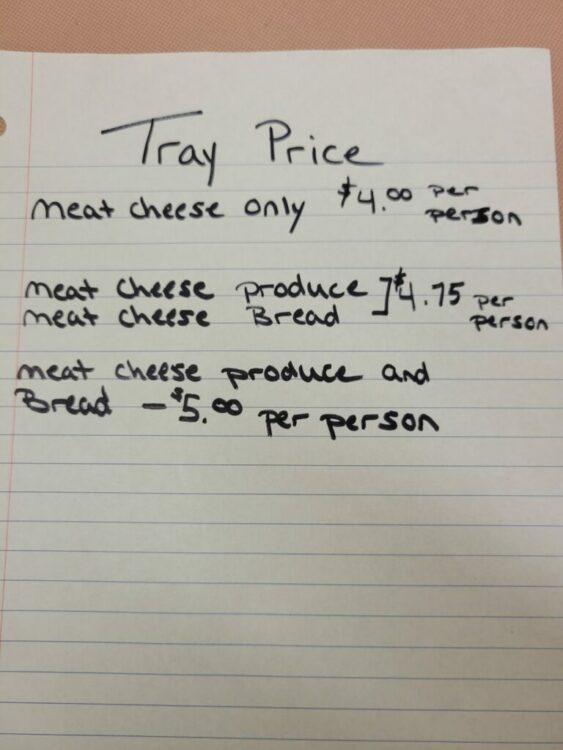 Tray Price
meat cheese only $4.00 per person
meat cheese produce ] $4.75 per person
meat cheese Bread
meat cheese produce and
Bread - $5.00 per person